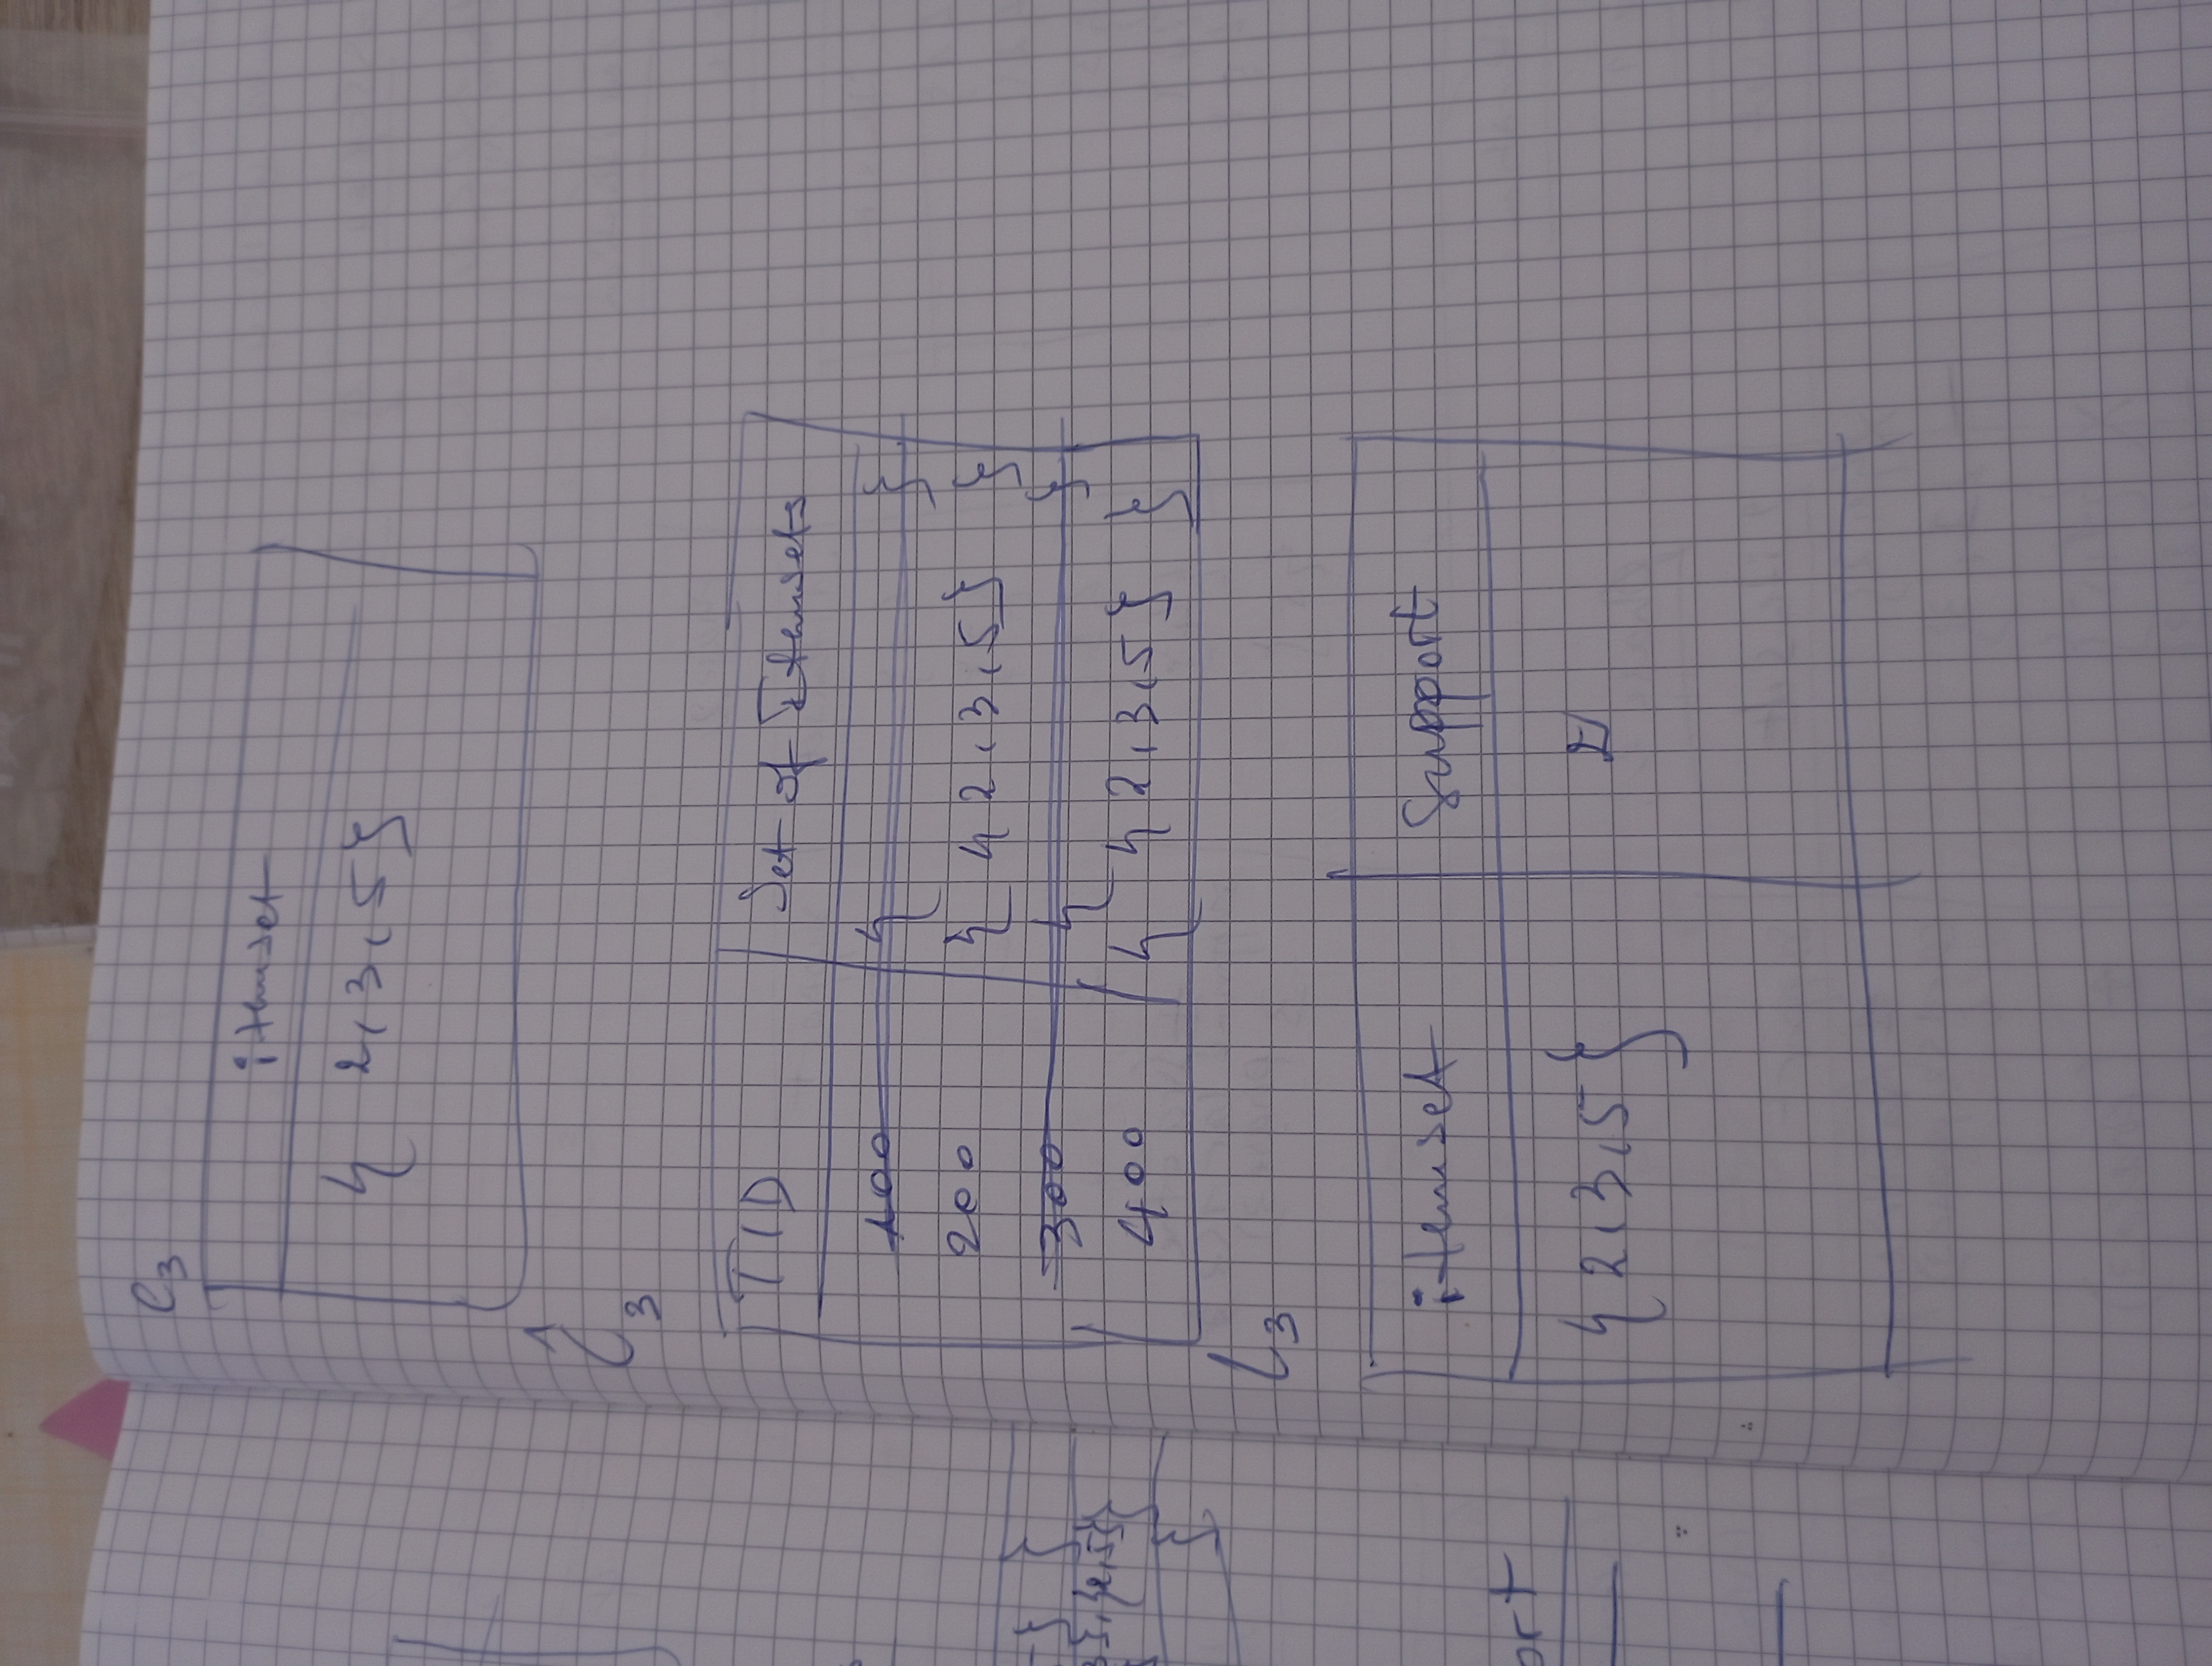 C3
itemset
{ 2, 3, 5}
Ĉ3
TID Set of Itemsets
100 { }
200 { { 2, 3, 5} }
300 { }
400 { { 2, 3, 5 } }
L3
itemset Support
{ 2, 3, 5 } 2
} }
3}, {2, 5}}
}
ort